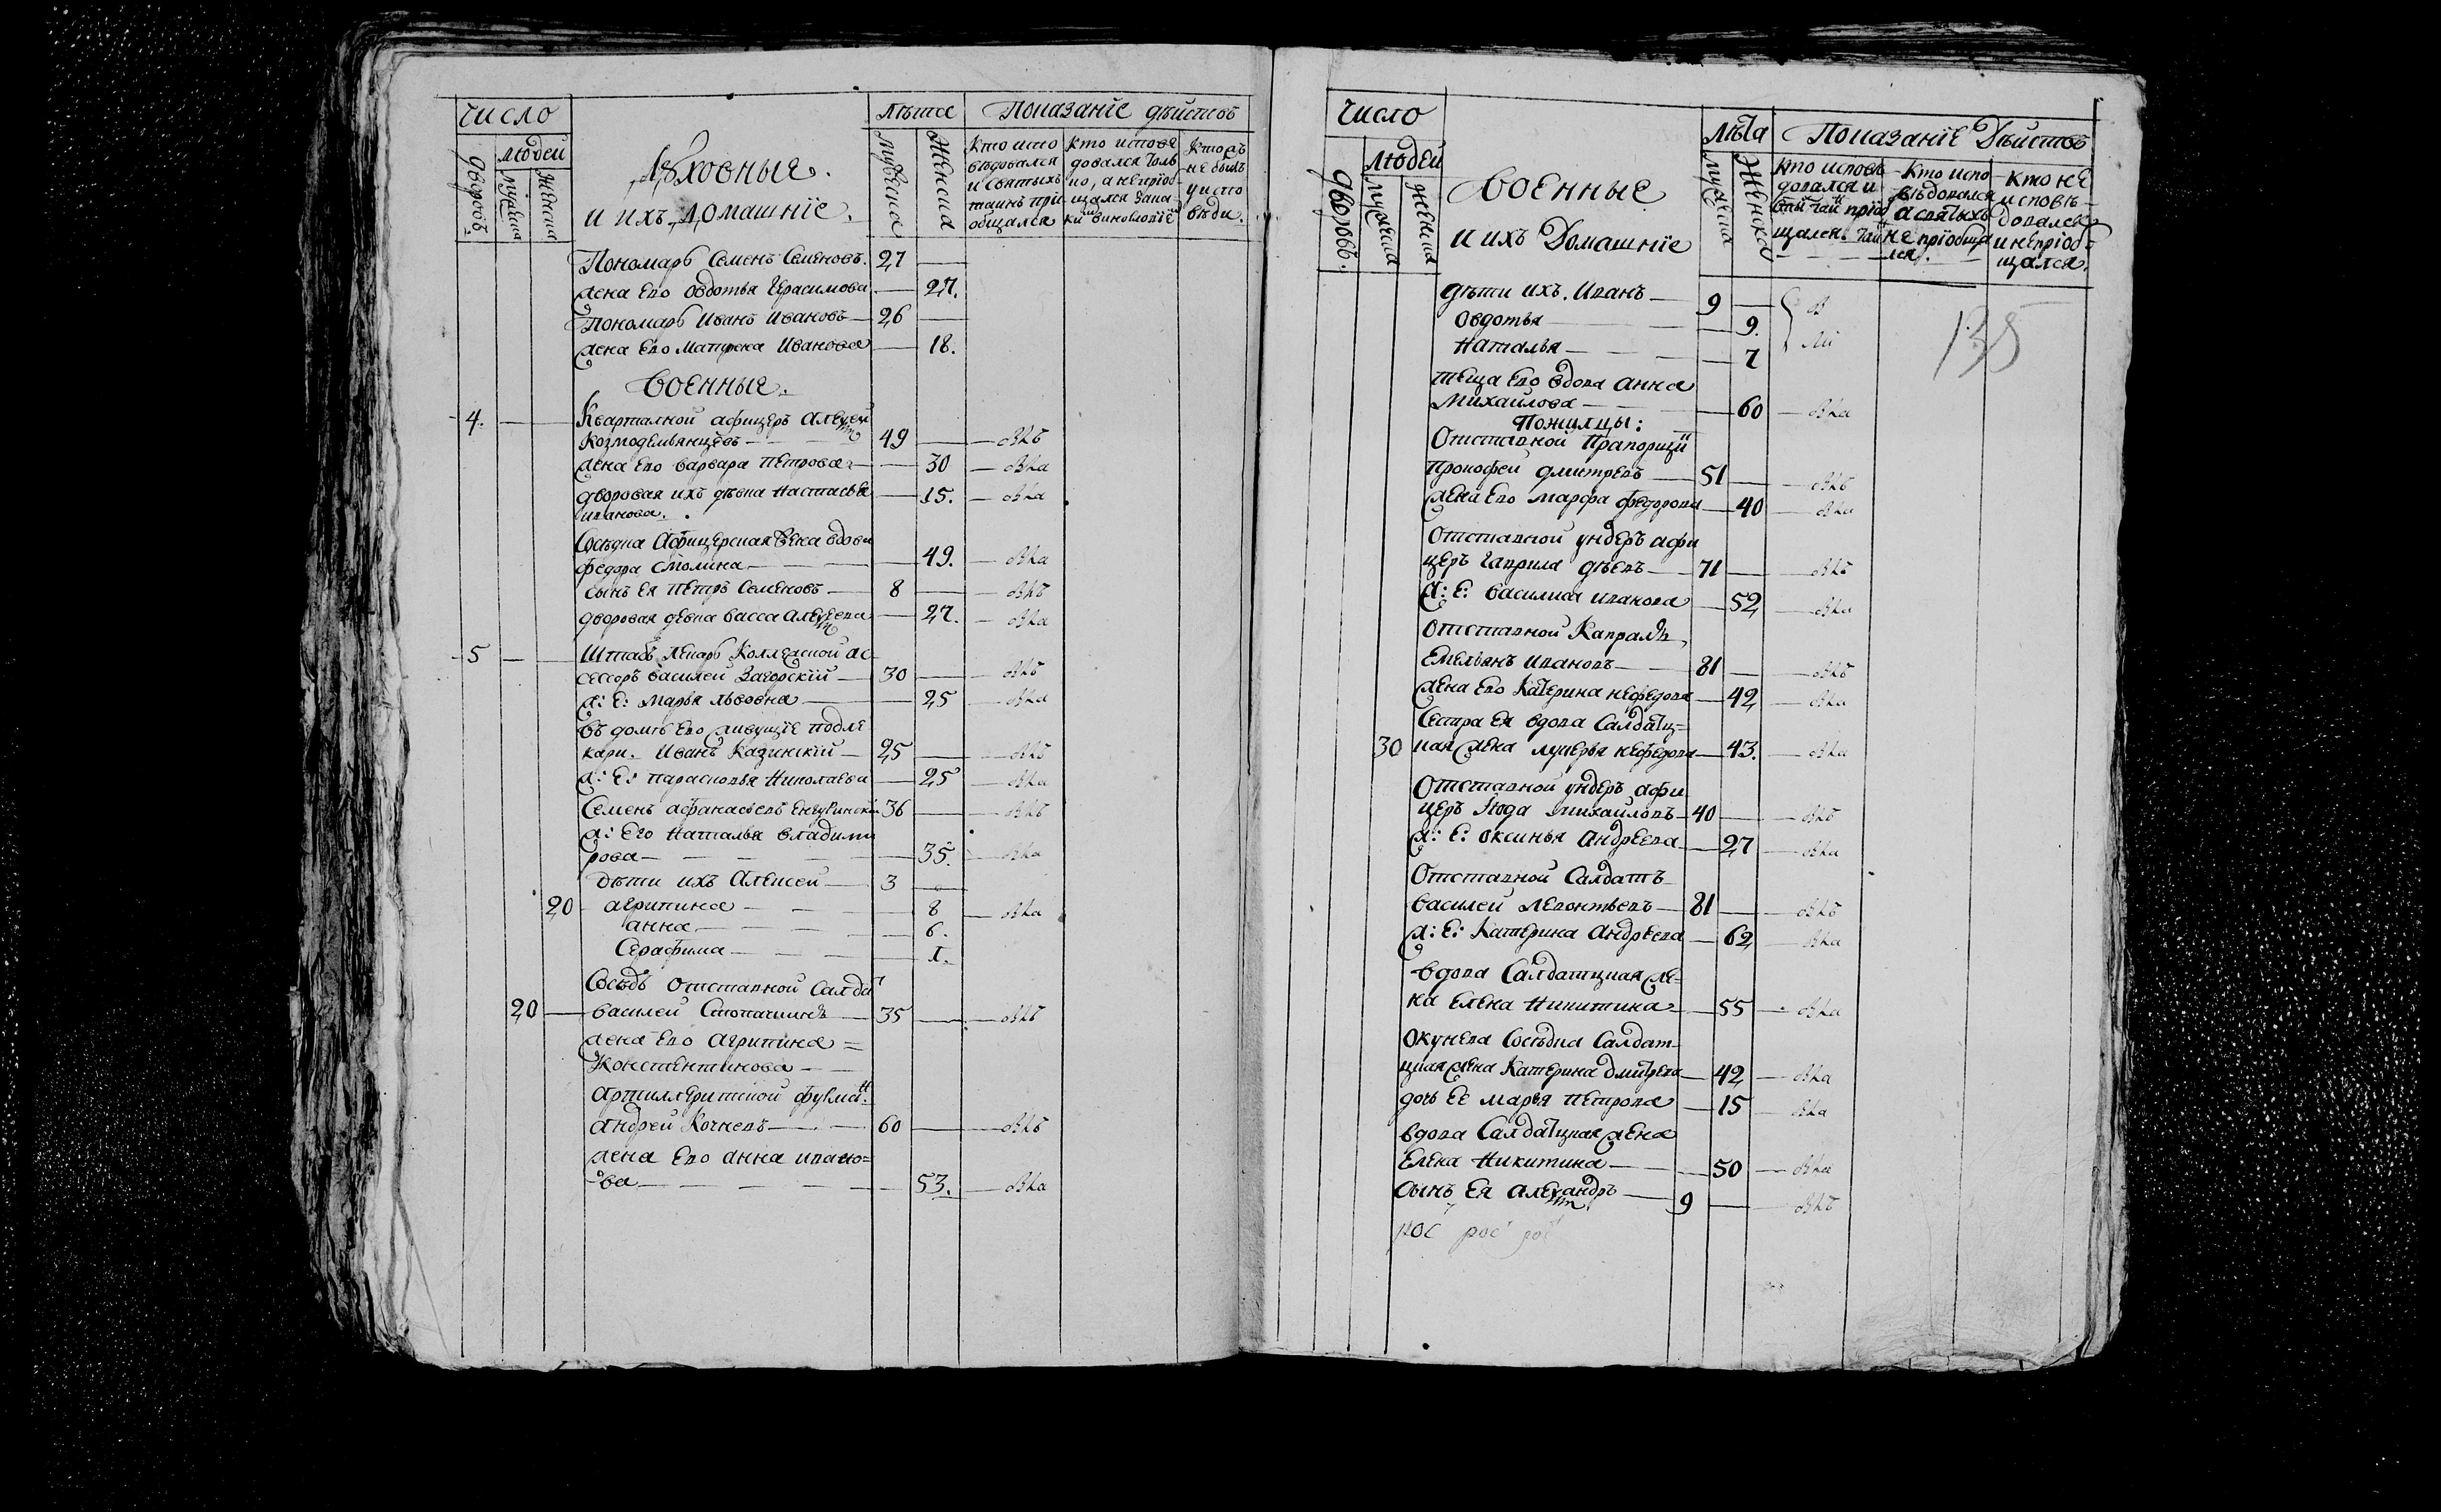 Число
Лѣта
Показание дѣйствъ
дворовъ
людей
мужеска
женска
Духовныя.
и ихъ домашнїе.
мужеска
Женска
Кто испо
вѣдовался
и святыхъ
таинъ прі
общался
Кто испове
довался толь
ко, а не пріоб-
щался
Кто въ
не былъ
у испо
вѣди.
Пономарь Семенъ Семеновъ. 27
жена Его Овдотья Герасимова 27.
Пономарь Иванъ Ивановъ 26
жена Его Матрена Иванова 18.
Военныя.
4. Кварталной афицеръ Алеѯѣй
Козмодемьянцевъ 49 Вкъ
жена Его варвара Петрова 30 Вка
дворовая ихъ дѣвка Настасья 15. Вка
иванова.
Сосѣдка Афицерская жена вдова
федора Смолина 49. Вка
сынъ Ея Петръ Семеновъ 8 Вкъ
дворовая девка Васса Алеѯеева 27. Вка
5 Штабъ лекарь Коллежской ас
сессоръ Василей Загорскїй 30 Вкъ
ж: Е: Марья Львовна 25 Вка
въ домѣ Его живущїе подле
кари. Иванъ Казинскїй 25 Вкъ
ж: Е: Парасковья Николаева 25 Вка
Семенъ Афанасьевъ 36 Вкъ
ж: Его Наталья владими
рова 35. Вка
дѣти ихъ Алексей 3
20 агрипина 8 Вка
анна 6.
Серафима 1.
Сосѣдъ Отставной Салда
20 Василей 35 Вкъ
жена Его Агрипина
Констентинова
Артиллеритской
Андрей Кочневъ 60 Вкъ
жена Его анна ивано=
ва 53. Вка
Число
Лѣта
Показанїе Дѣйствъ
дворовъ.
людей
мужеска
женска
Военныя
и ихъ Домашнїе
мужеска
Женска
Кто исповѣ
довался и
щался.
Кто испо
вѣдовался
а святыхъ
не прїобща
лся.
Кто не
исповѣ-
довался
и непріоб
щался.
дѣти ихъ. Иванъ 9 В
Овдотья 9.
Наталья 7
теща Его вдова анна
Михайлова 60 Вка
Пожилцы:
Отставной Прапорщи
Прокофей Дмитревъ 51 Вкъ
жена Его Марфа федорова 40 Вка
Отставной ундеръ афи
церъ Гаврила 71 Вкъ
ж: Е: Василиса иванова 52 Вка
Отставной Капралъ
Емельянъ Ивановъ 81 Вкъ
жена Его Катерина нефедова 42 Вка
Сестра Ея вдова Салдатц=
30 кая жена лукерья нефедова 43. Вка
Отставной ундеръ афи
церъ Михайловъ 40 Вкъ
ж: Е: Оксинья Андреева 27 Вка
Отставной Салдатъ
Василей Левонтьевъ 81 Вкъ
ж: Е: Катерина Андреева 62 Вка
вдова Салдатцкая же-
на Елена Никитина 55 Вка
Окунева Сосѣдка Салдат-
цкая жена Катерина Дмитрева 42 Вка
дочь Ее Марья Петрова 15 Вка
вдова Салдатцкая жена
Елена Никитина 50 Вка
сынъ Ея Алеѯандръ 9 Вкъ
135